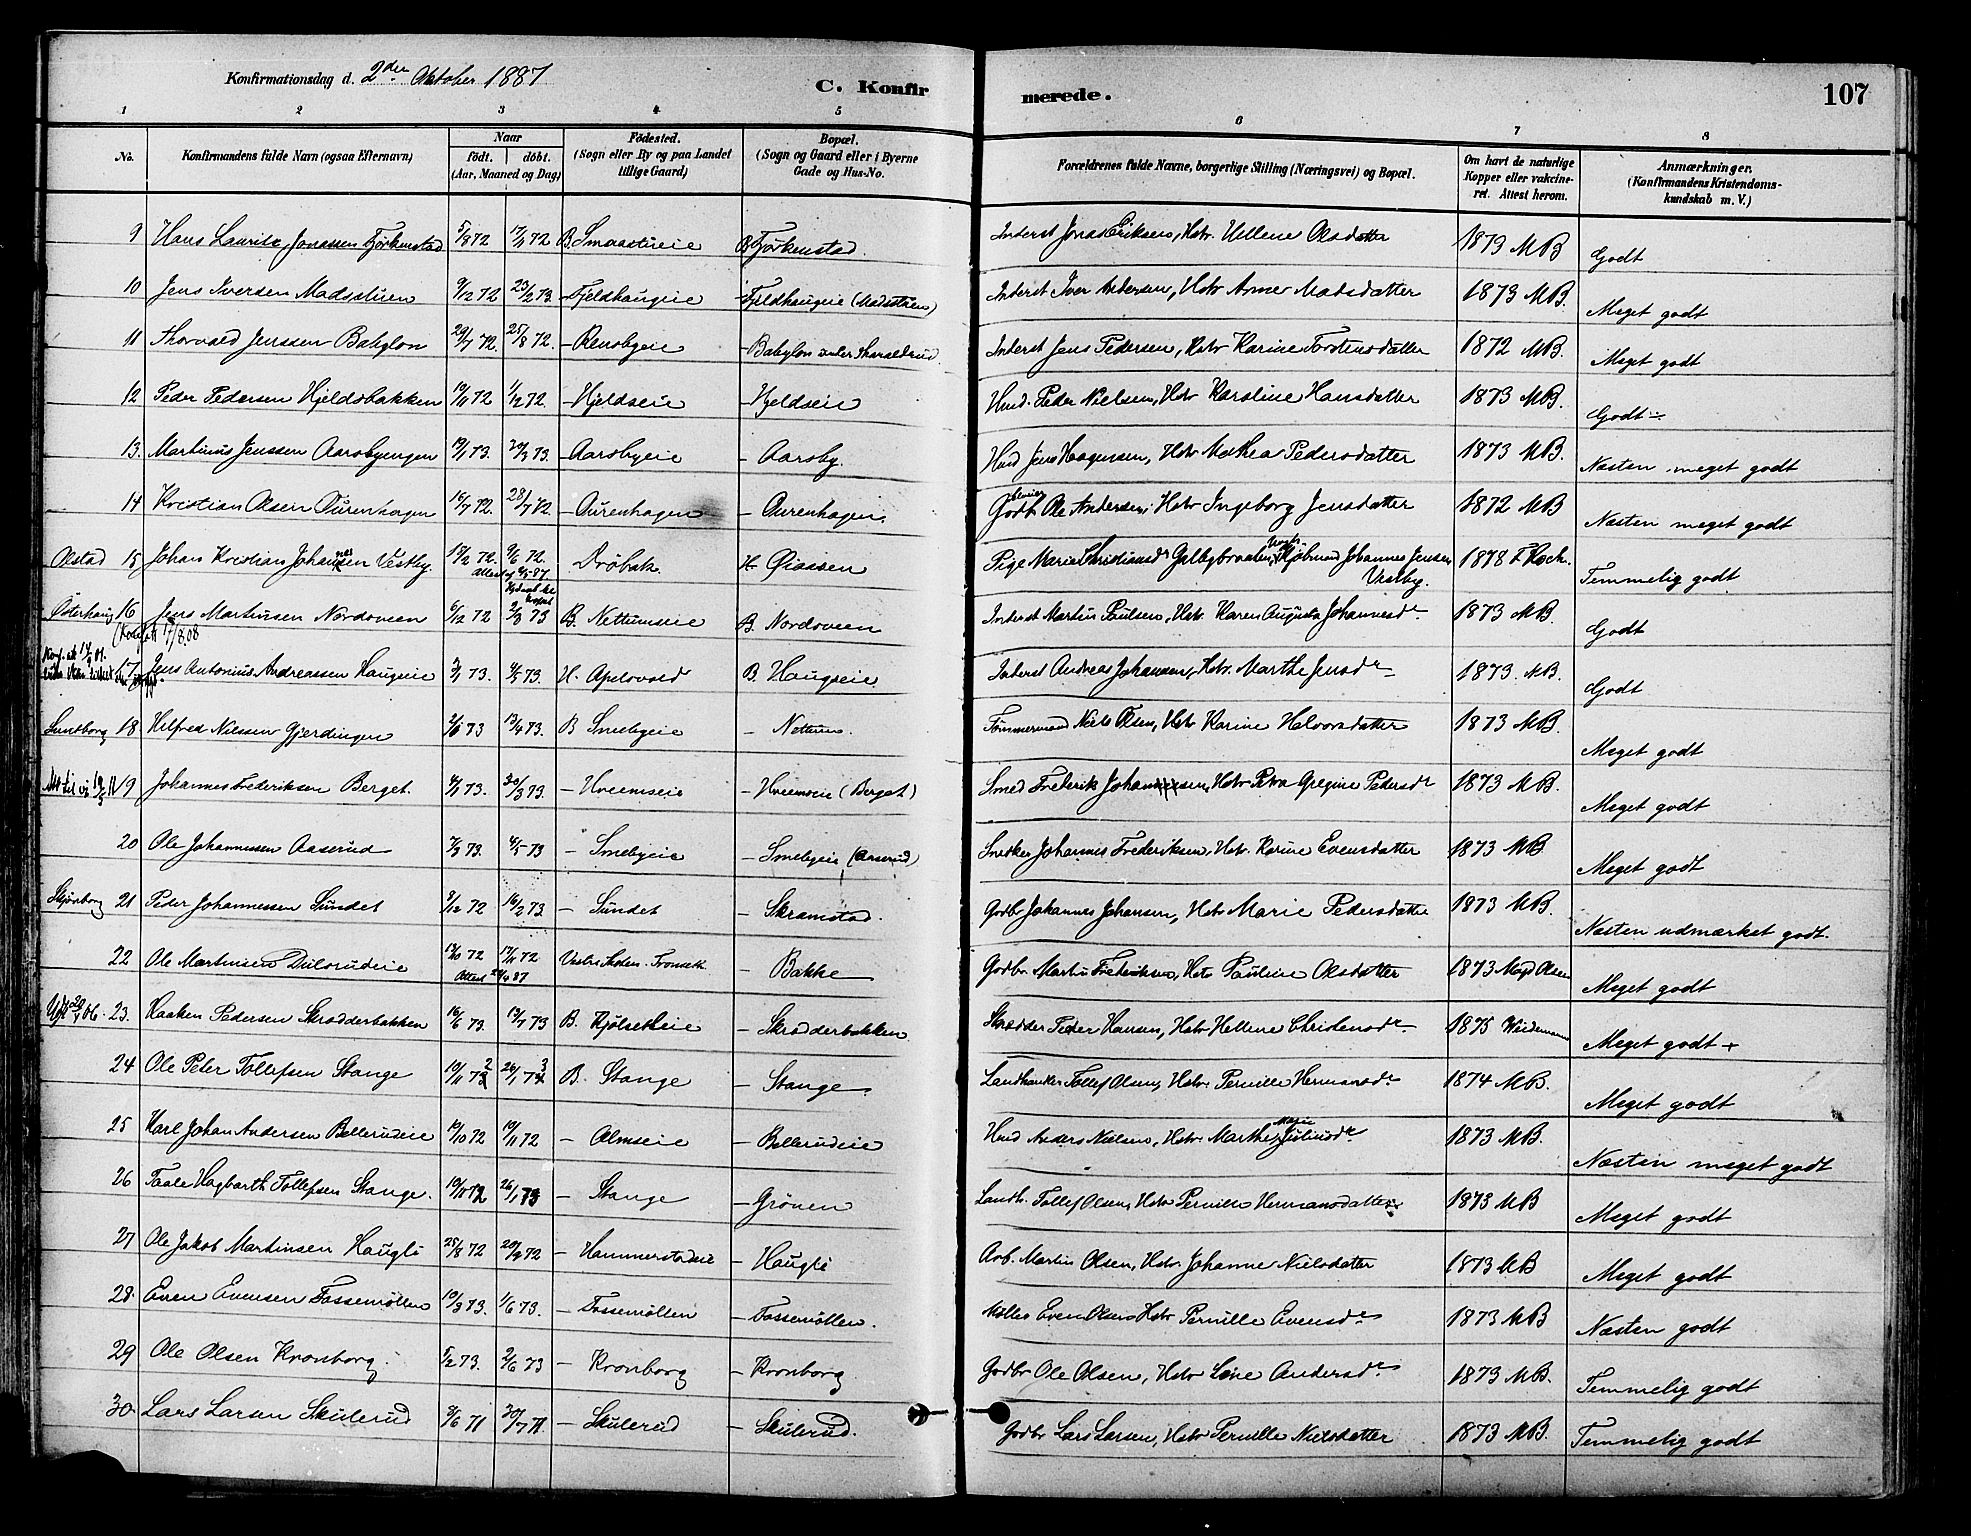 Konfirmationsdag d. 2den Oktober 1887
C. Konfirmerede.
107
1 2 3 4 5 6 7 8
No. Konfirmandens fulde Navn (ogsaa Efternavn) Naar födt. döbt. (Aar, Maaned og Dag) Födested. (Sogn eller By og paa Landet tillige Gaard) Bopæl. (Sogn og Gaard eller i Byerne Gade og Hus-No. Forældrenes fulde Navne, borgerlige Stilling (Næringsvei) og Bopæl. Om havt de naturlige Kopper eller vakcineret. Attest herom. Anmærkninger. (Konfirmandens Kristendomskundskab m. V.)
9 Hans Lauritz Jonassen Fjörkenstad 5/9 72 17/11 72 B. Smaastueie B Fjörkenstad. Inderst Jonas Eriksen, Hstr. Hellene Olsdatter 1873 MB Godt
10 Jens Iversen Madsstuen 9/12 72 23/2 73. - Fjeldhaugeie - Fjeldhaugeie (Madsstuen) Inderst Iver Andersen, Hstr Anne Madsdatter 1873 MB. Meget godt
11 Thorvald Jenssen Babylon 29/7 72. 25/8 72. - Renobgeie - Babylon under Skarseldrud Inderst Jens Pedersen, Hstr Karine Torstensdatter 1872 MB. Meget godt
12 Peder Pedersen Hjeldsbakken 19/11 72 1/12 72. - Hjeldseie - Hjeldseie Hmd. Peder Nielsen, Hstr Karoline Hansdatter 1873 MB. Godt ÷
13. Martinus Jenssen Aarsbyengen 19/1 73. 20/3 73. - Aarsbyeie - Aarsby. Hmd Jens Haagensen, Hstr Mathea Pedersdatter 1873 MB. Næsten meget godt
14 Kristian Olsen Aurenhagen 16/7 72. 28/7 72 - Aurenhagen - Aurenhagen. Godbr Ole Andersen, Hstr Ingeborg Jensdatter 1872 MB Næsten meget godt
Olstad 15 Johan Kristian Johannesen Vestby. 15/2 72. 9/6 72. Dröbak H. Qiassen Pige Marie Christiansdr Galbybraaten, Kjöbmand Johannes Jensen Vestby. 1878 F Koch. Temmelig godt
Österhaug 16 Jens Martinsen Nordsveen 6/12 72 2/3 73 B. Nettumseie B. Nordsveen Inderst Martin Paulsen, Hstr. Karen Augusta Johannesdr 1873 MB. Godt
17 Jens Antonius Andreassen Haugseie 2/4 73. 4/5 73. H. Apelsvold B. Haugseie. Inderst Andreas Johansen, Hstr. Marthe Jensdr 1873. MB. Godt
Sundborg 18 Hilfred Nilssen Gjerdingen 2/6 73 13/4 73. B Smebyeie - Nettum. Tömmermand Niels Olsen, Hstr Karine Halvorsdatter 1873 MB. Meget godt
19 Johannes Frederiksen Berget. 4/1 73. 30/3 73. - Hveemseie - Hveemseie (Berget) Smed Frederik Johansen, Hstr Petra Gregine Pedersdr 1873 MB. Meget godt
20 Ole Johannessen Aaserud 7/3 73. 4/5 73 - Smebyeie - Smebyeie (Aaserud) Snedker Johannes Frederiksen, Hstr. Karine Evensdatter 1873 MB. Meget godt
Skjönborg 21 Peder Johannessen Sundet 9/12 72 16/2 73. - Sundet - Skramstad. Godbr Johannes Johansen, Hstr Marie Pedersdatter 1873 MB. Næsten udmærket godt.
22 Ole Martinsen Dulerudeie 13/10 72 17/11 72 Vestre Toten - - Bakke Godbr Martin Frederiksen, Hstr Pauline Olsdatter 1873 Magd Olsen Meget godt
23. Haaken Pedersen Skrædderbakken 16/6 73. 13/7 73 B. Kjölsetheie - Skrædderbakken Skrædder Peder Hansen, Hstr Hellene Christensdr 1875 Weidemann Meget godt +
24 Ole Peter Tollefsen Stange 19/11 72 26/1 73 B. Stange - Stange. Landhandler Tollef Olsen, Hstr. Pernille Hermansdr 1874 MB. Meget godt
25 Karl Johan Andersen Bellerudeie 19/10 72 19/11 72 - Almseie - Bellerudeie Hmd Anders Nielsen, Hstr. Marthe Marie Juliusdr 1873 MB. Næsten meget godt
26 Taale Hagbarth Tollefsen Stange. 19/11 72 26/1 73 - Stange - Grönen Landh. Tollef Olsen, Hstr Pernille Hermansdatter 1873 MB Meget godt
27 Ole Jakob Martinsen Haugli 25/8 72 29/9 72 - Hammerstadeie - Haugli Arb. Martin Olsen, Hstr. Johanne Nielsdatter 1873 MB Meget godt
28. Even Evensen Fossemöllen 19/3 73. 1/6 73. - Fossemöllen - Fossemöllen. Möller Even Olsen Hstr Pernille Evensdr 1873 MB Næsten godt
29 Ole Olsen Kronborg. 5/2 73. 2/6 73 - Kronborg - Kronborg Godbr Ole Olsen, Hstr Lene Andersdr 1873 MB. Temmelig godt
30. Lars Larsen Skulerud 3/6 71 30/7 71. - Skulerud - Skulerud. Godbr Lars Larsen, Hstr Pernille Nielsdatter 1873 MB. Temmelig godt